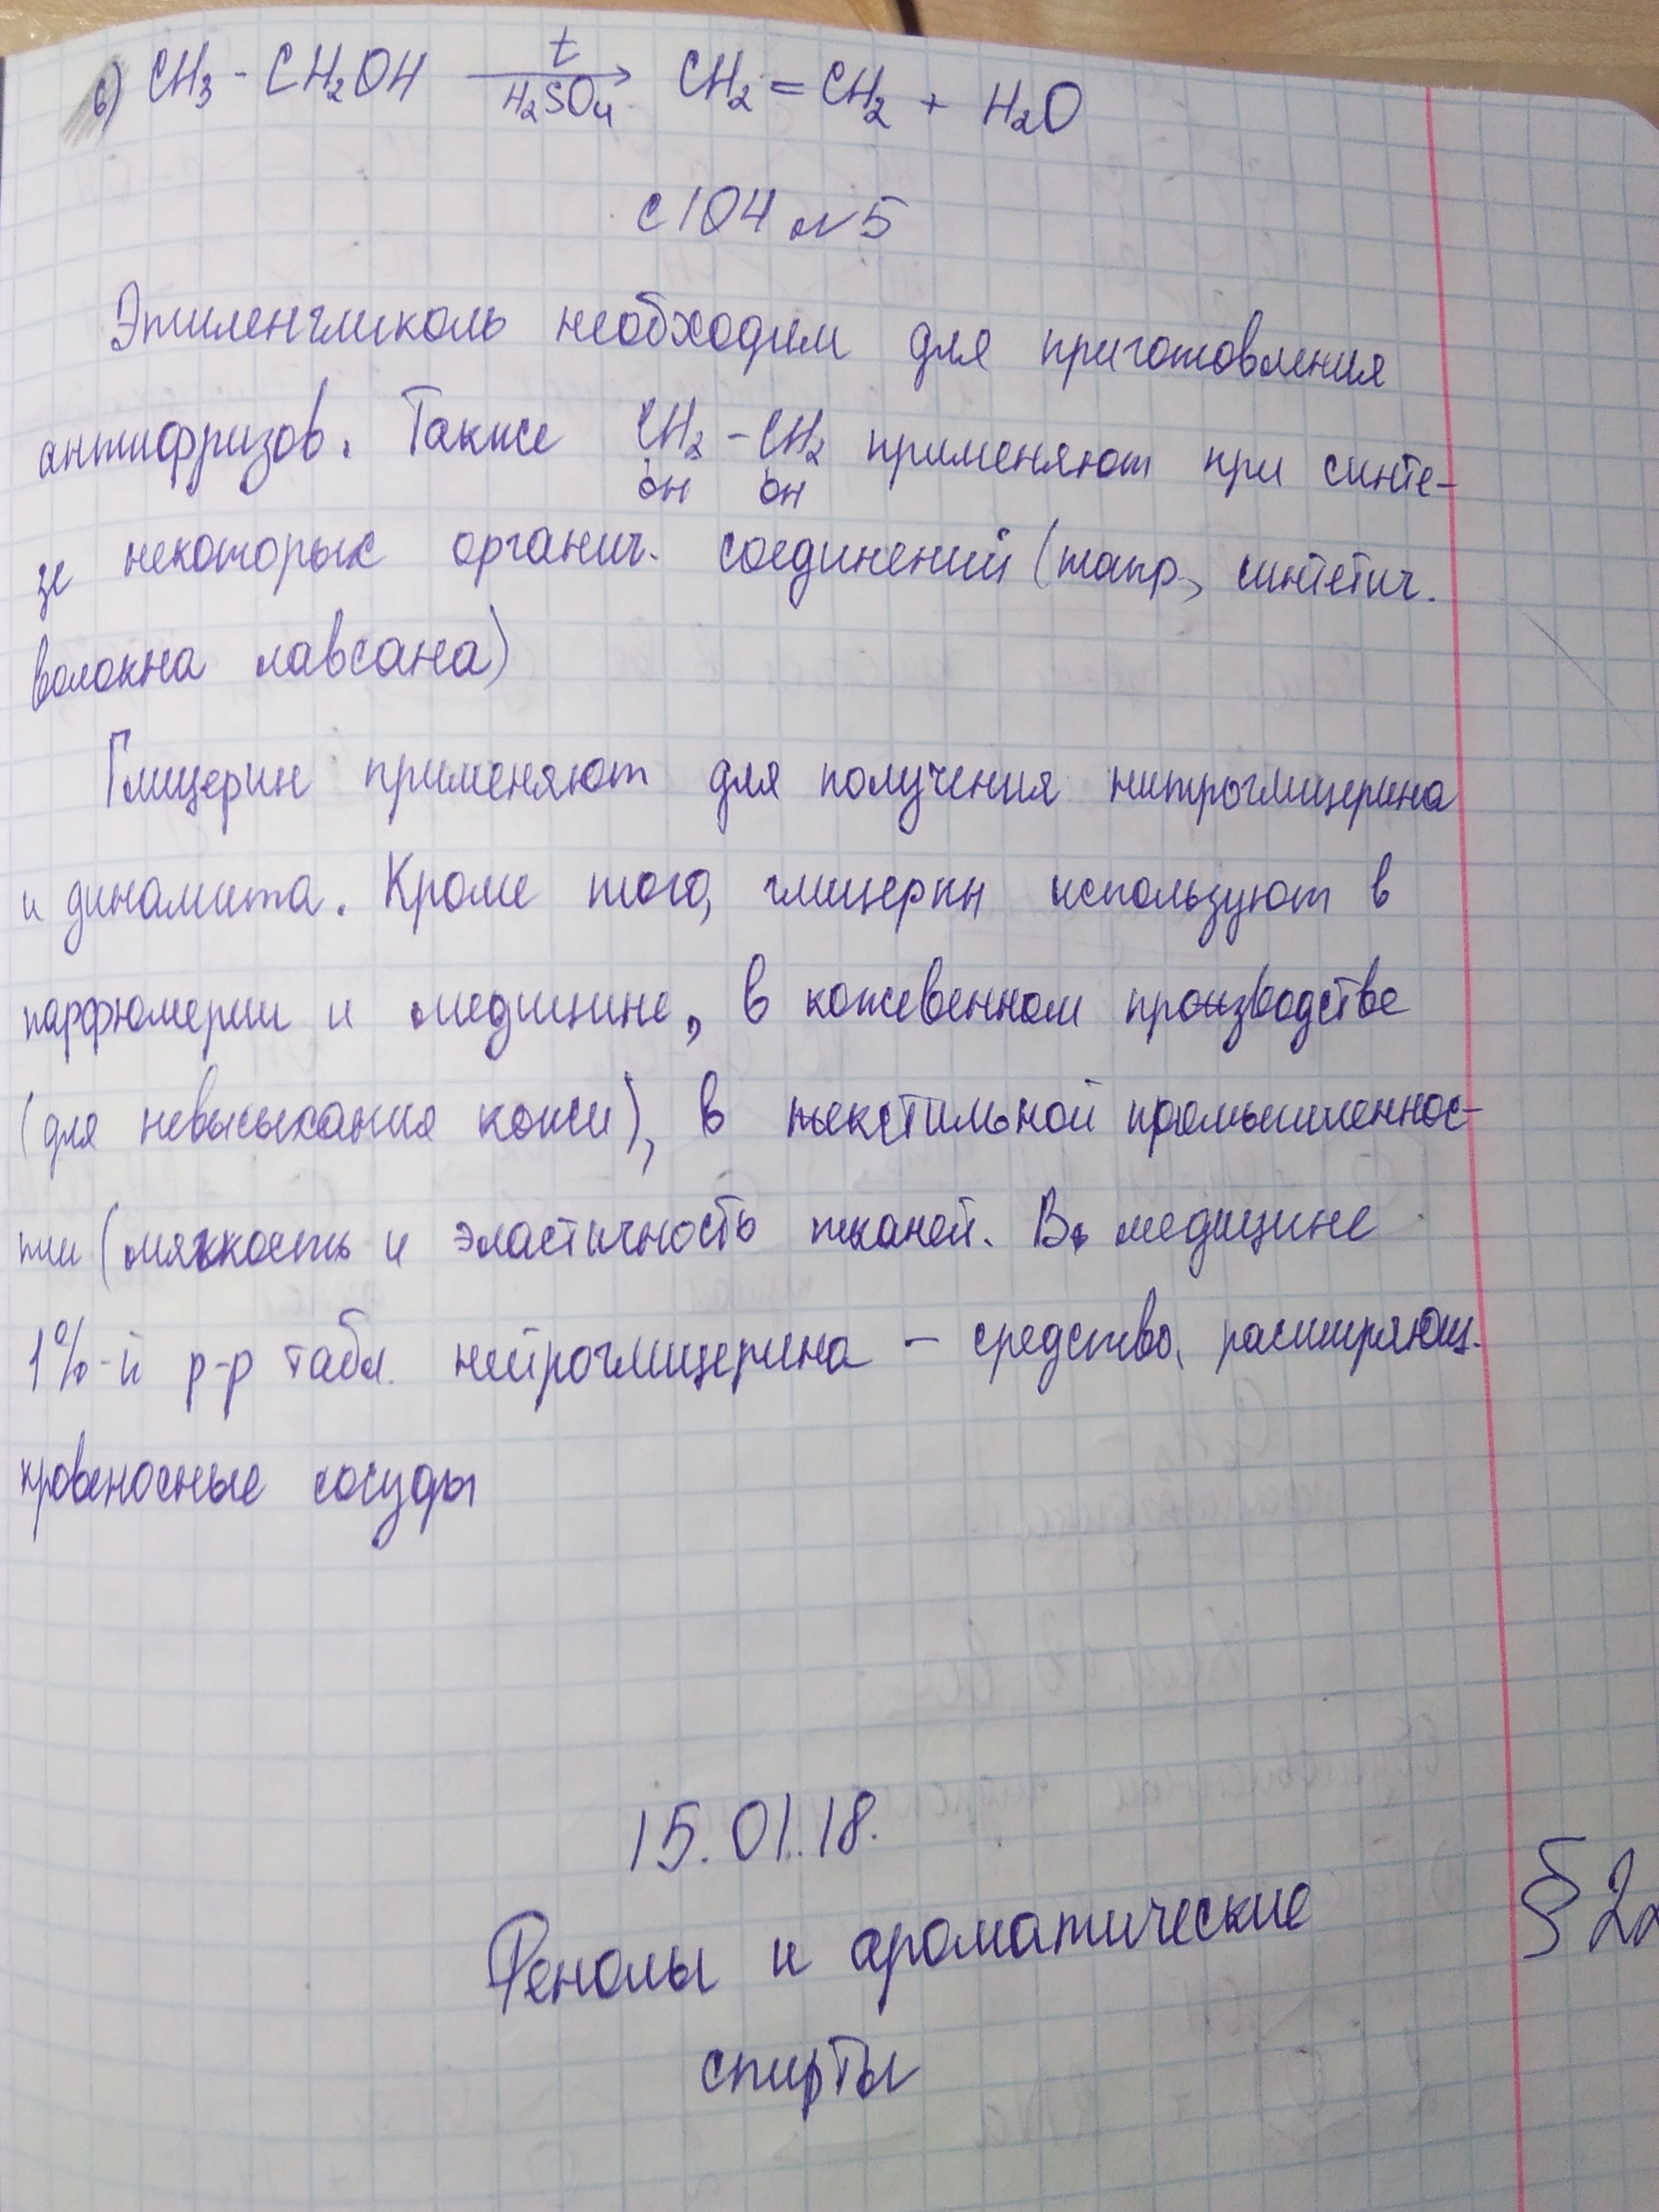 6) CH₃ - CH₂OH t → H₂SO₄ CH₂ = CH₂ + H₂O
с 104 №5
Этиленгликоль необходим для приготовления
антифризов. Также CH₂ - CH₂ применяют при синте-
OH OH
зе некоторых органич. соединений (напр, синтетич.
волокна лавсана)
Глицерин применяют для получения нитроглицерина
и динамита. Кроме того, глицерин используют в
парфюмерии и медицине, в кожевенном производстве
(для невысыхания кожи), в текстильной промышленнос-
ти (мягкость и эластичность тканей. В медицине
1%-й р-р табл. нейроглицерина – средство, расширяющ.
кровеносные сосуды
15.01.18.
Фенолы и ароматические
§ 22
спирты